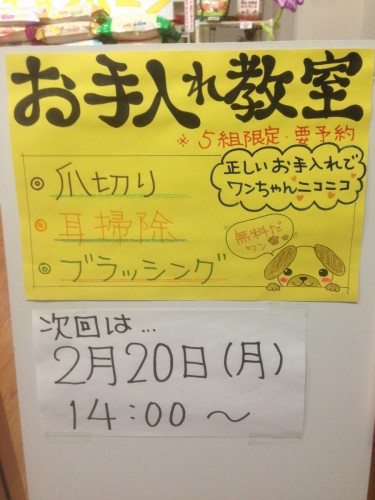 お手入れ教室
※5組限定・要予約
正しいお手入れで
ワンちゃんニコニコ
◎爪切り
◎耳掃除
◎ブラッシング
無料だ
ワン
次回は…
2月20日(月)
14:00〜